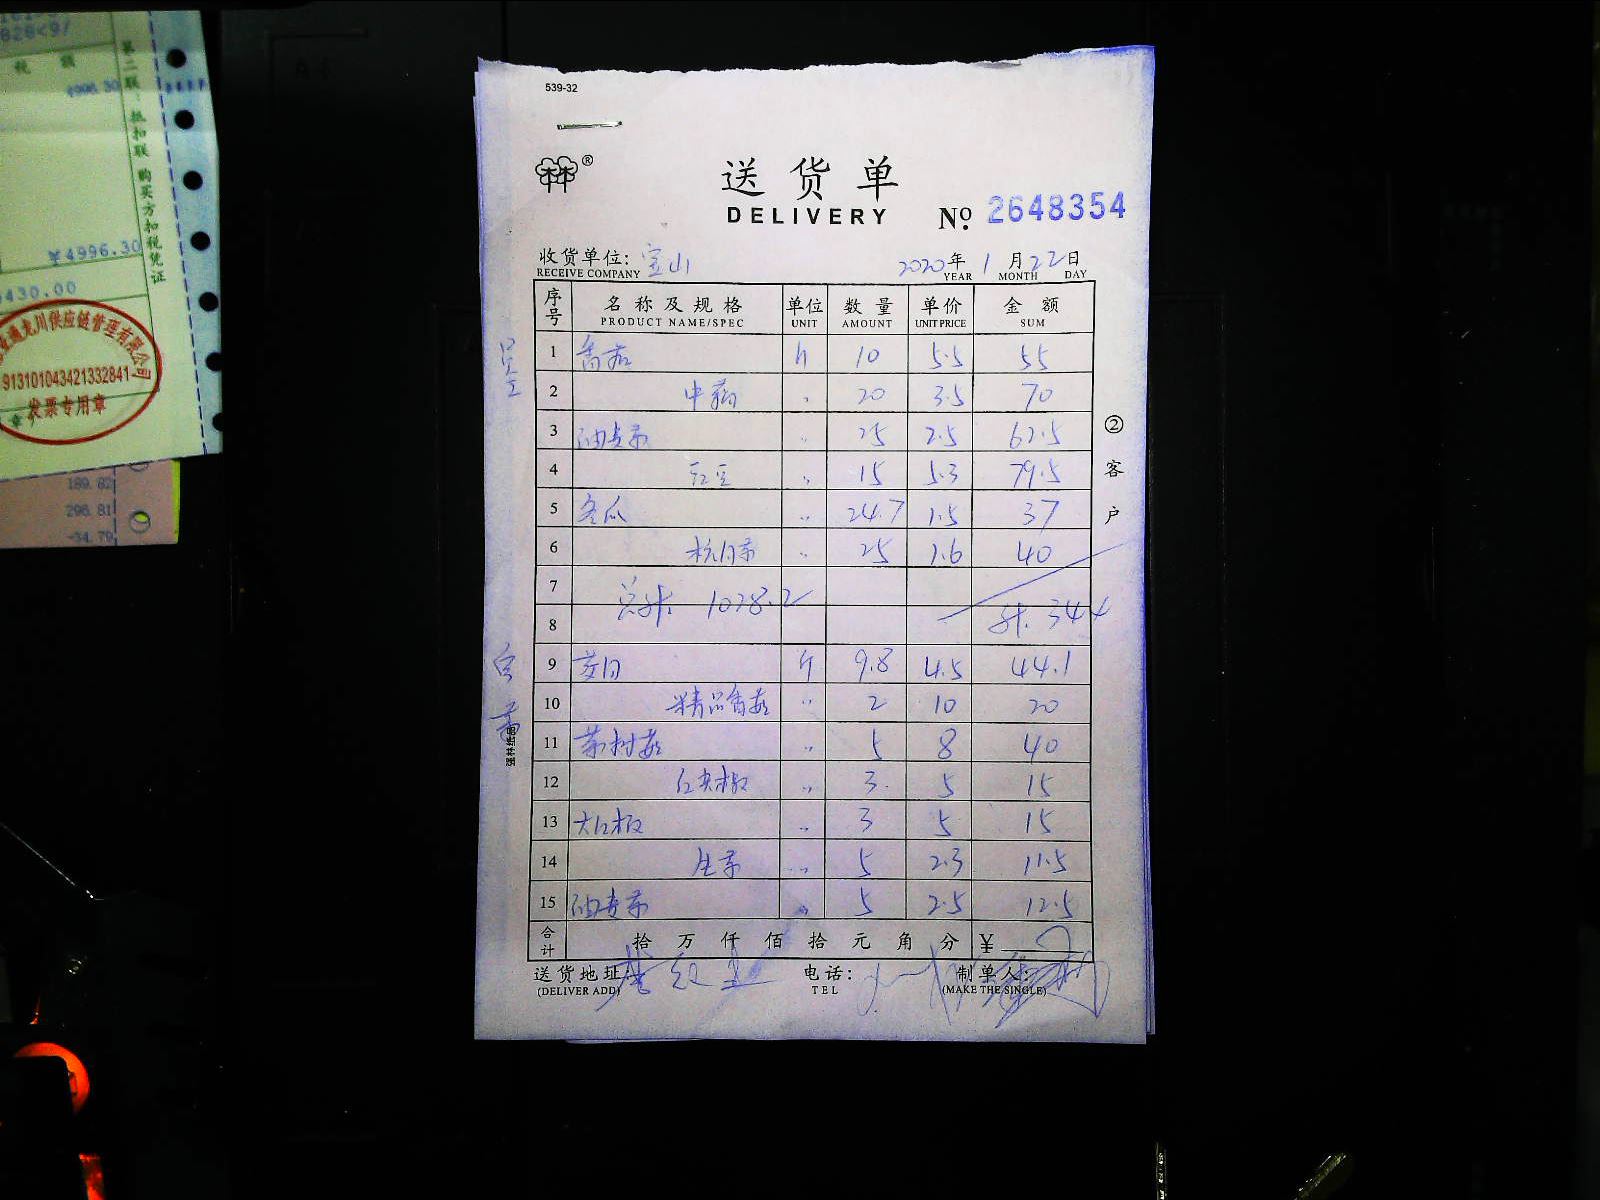 828<9/
税 额
4996.30
¥4996.30
430.00
第二联:抵扣联 购买方扣税凭证
川供应链管理有限公司
913101043421332841
发票专用章
189.82
296.81
-34.79
539-32
®
送货单
DELIVERY
№ 2648354
收货单位: 宝山
RECEIVE COMPANY
2020年 1月22日
YEAR MONTH DAY
序号 名称及规格 单位 数量 单价 金额
PRODUCT NAME/SPEC UNIT AMOUNT UNIT PRICE SUM
1 香菇 斤 10 5.5 55
2 20 3.5 70
3 油麦菜 〃 25 2.5 62.5
4 红豆 〃 15 5.3 79.5
5 冬瓜 〃 24.7 1.5 37
6 杭白菜 〃 25 1.6 40
7 总计: 1028.2
8 计: 344
9 斤 9.8 4.5 44.1
10 精品香菇 〃 2 10 20
11 茶树菇 〃 5 8 40
12 红尖椒 〃 3 5 15
13 大红椒 〃 3 5 15
14 生菜 〃 5 2.3 11.5
15 油麦菜 〃 5 2.5 12.5
合计 拾 万 仟 佰 拾 元 角 分 ¥
②客户
强林纸品
送货地址:
(DELIVER ADD)
电话:
TEL
制单人:
(MAKE THE SINGLE)